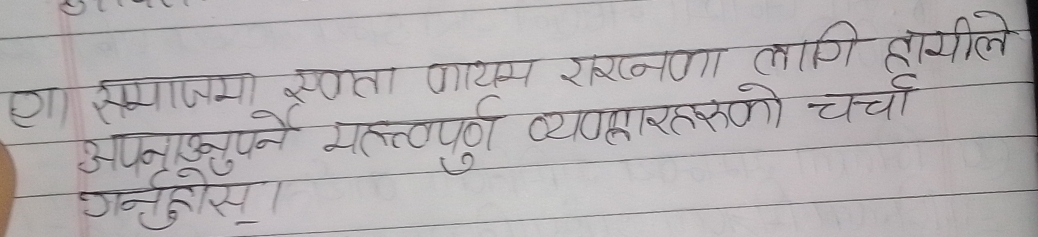 ग। समाजमा एकता कायम राख्नका लागि हामीले
अपनाउनुपर्ने महत्त्वपुर्ण व्यवहारहरूको चर्चा
गर्नुहोस्।